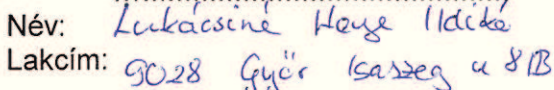 Név: Lukácsiné Ilduké
Lakcím: 9028 Győr Isaszeg u 8/B